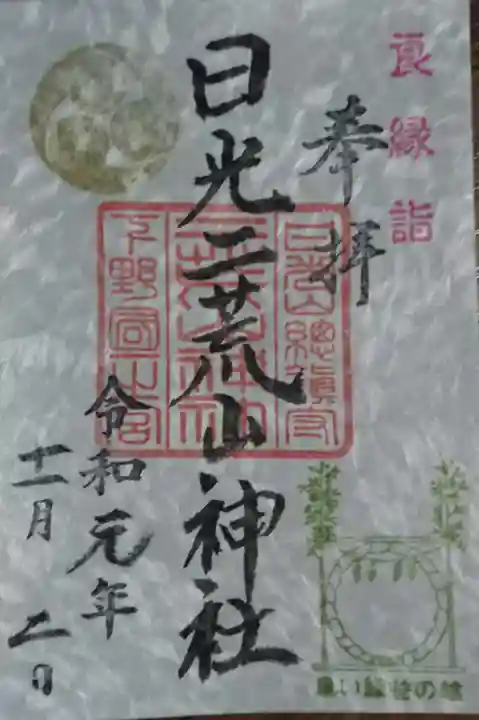 良縁詣
奉拝
日光二荒山神社
日光山總鎮守
二荒山神社
下野國一之宮
令和元年
十一月 二日
良い縁むすびの笹